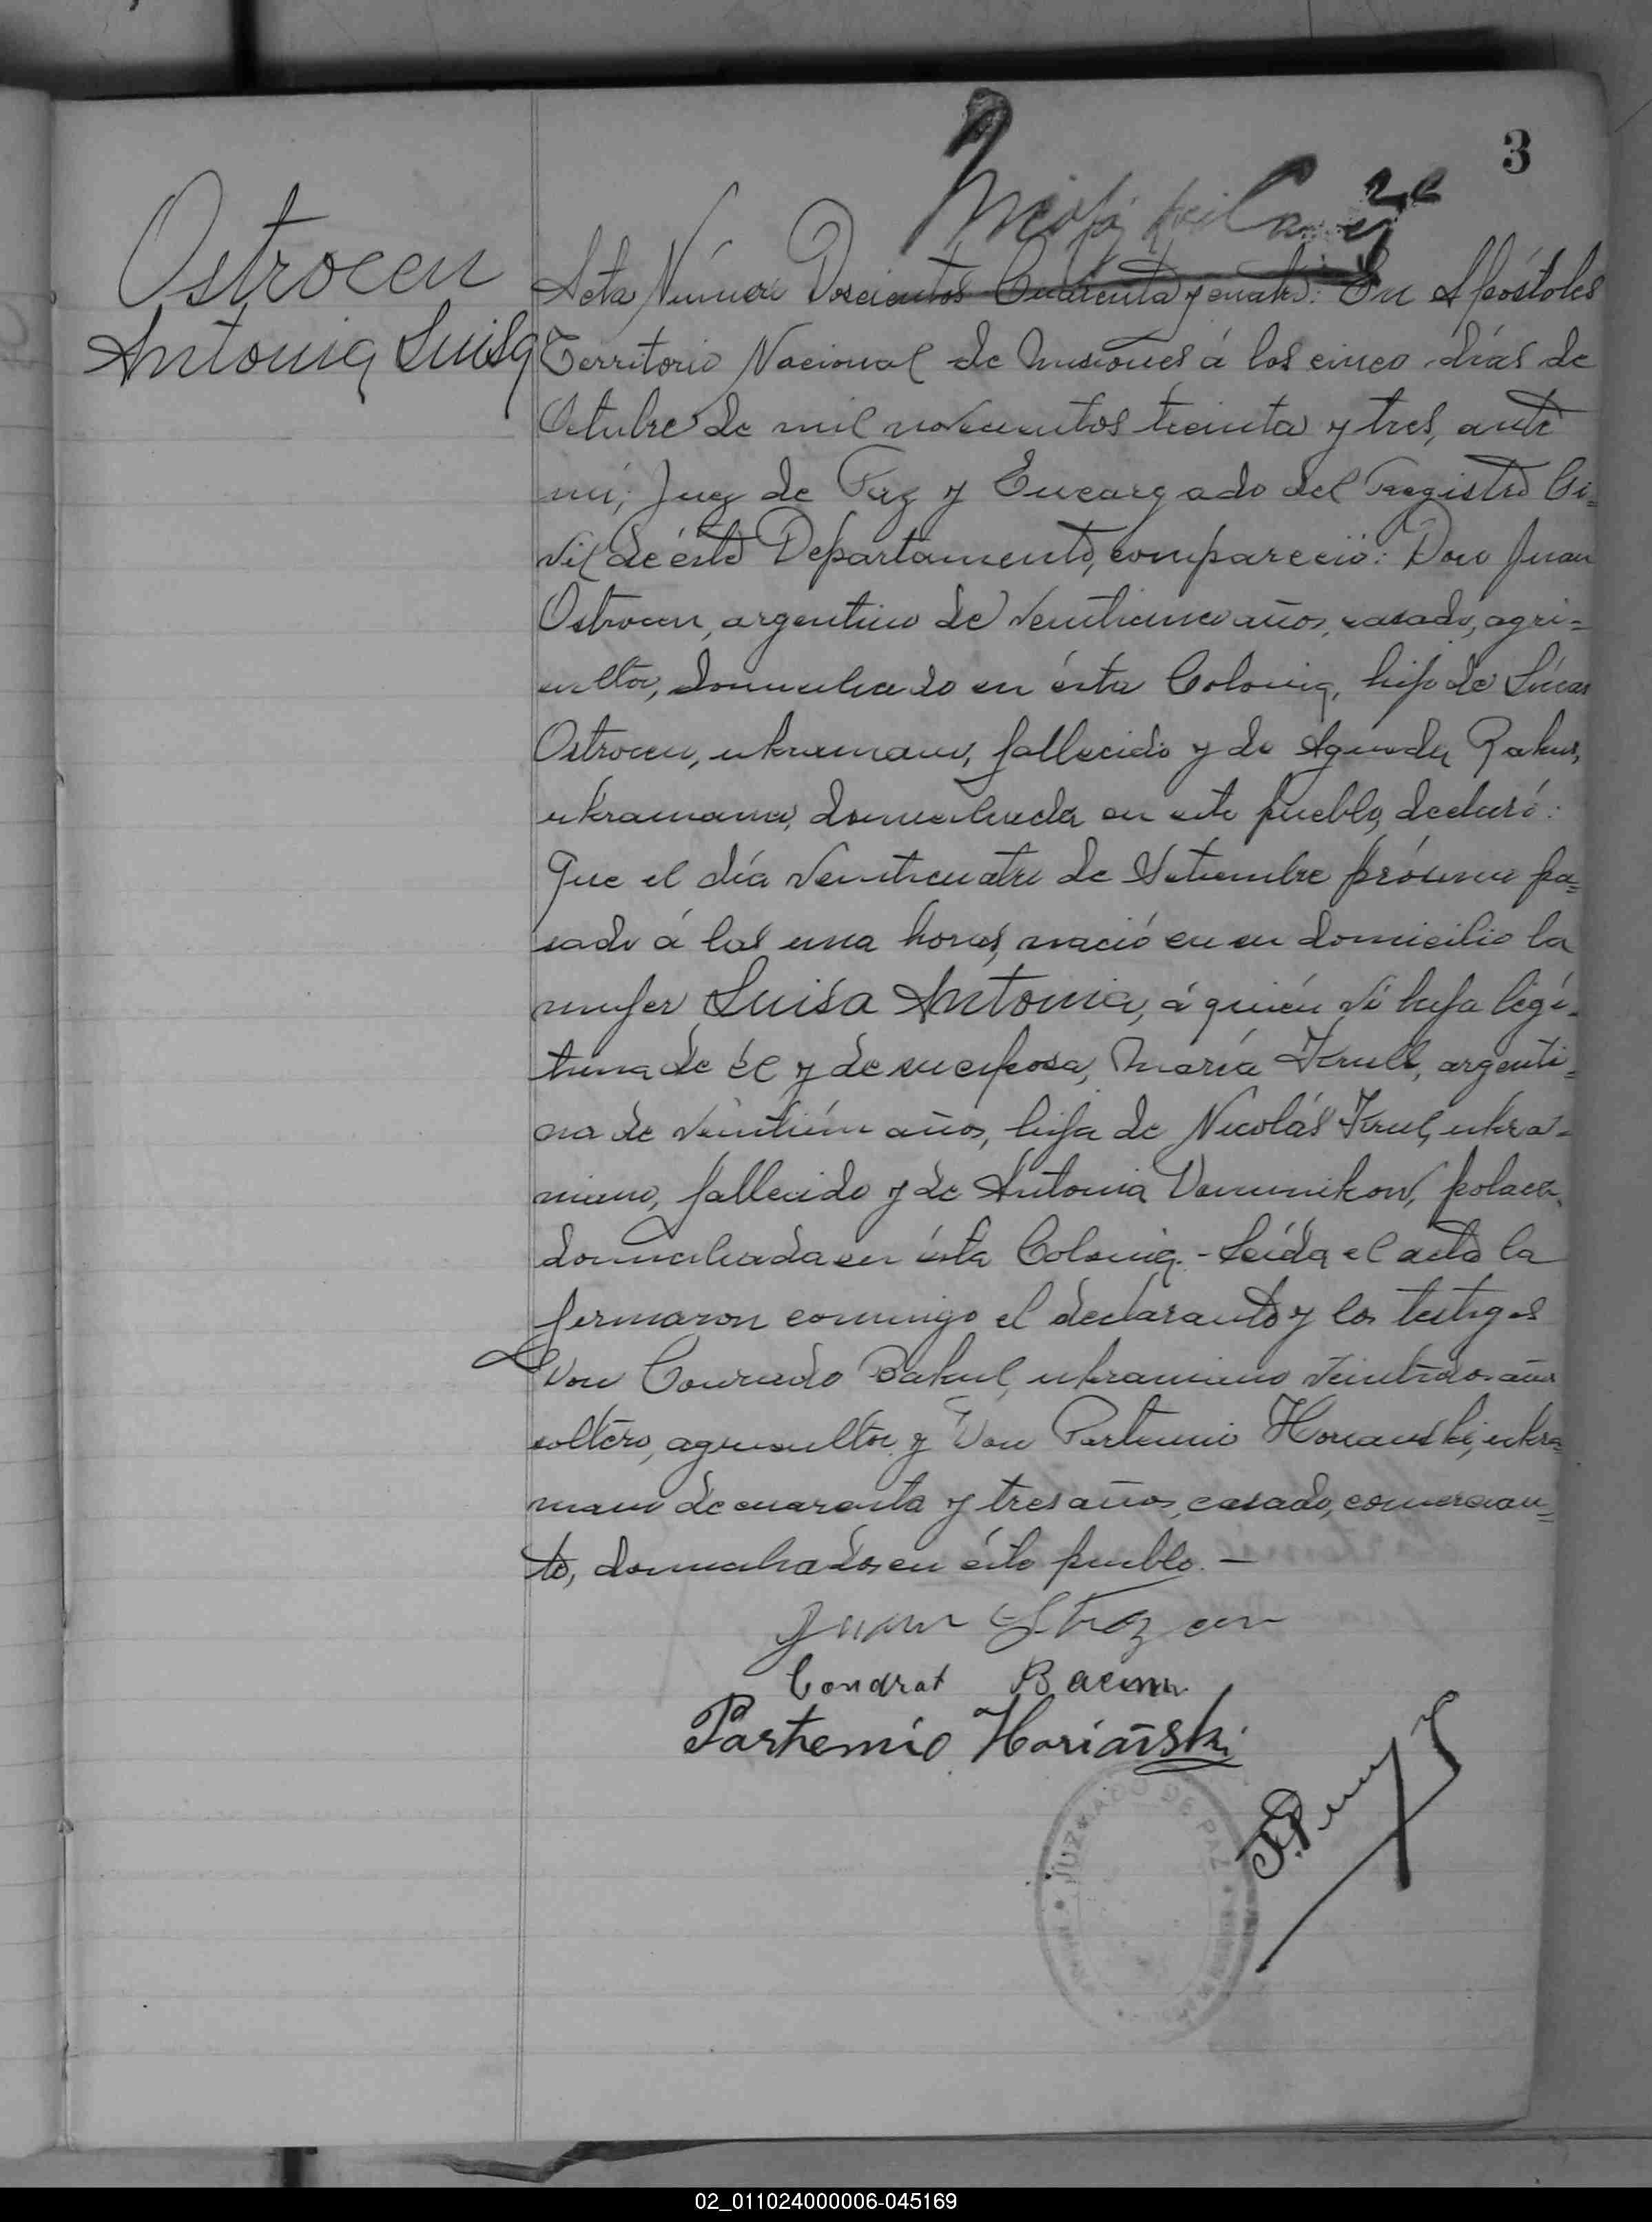 3
Ostrocen
Antonia Luisa
Acta Número Doscientos Cuarenta y cuatro: En Apóstoles
Territorio Nacional de Misiones á los cinco días de
Octubre de mil novecientos treinta y tres, ante
mí, Juez de Paz y Encargado del Registro Ci=
vil de éste Departamento, compareció: Don Juan
Ostrocen, argentino de veinticinco años, casado, agri=
cultor, domiciliado en ésta Colonia, hijo de Lúcas
Ostrocen, ukraniano, fallecido y de Agueda Rakus,
ukraniana, domiciliada en este pueblo, declaró:
Que el día veinticuatro de Setiembre próximo pa=
sado á las una horas, nació en su domicilio la
mujer Luisa Antonia, á quién vi hija legí=
tima de él y de su esposa, María Krull, argenti=
na de veintiún años, hija de Nicolás Krul, ukra=
niano, fallecido y de Antonia, polaca,
domiciliada en ésta Colonia.- Leída el acta la
firmaron conmigo el declarante y los testigos
Don Conrado Bakul, ukraniano veintidos años
soltero, agricultor y Don Partemio Horianski, ukra=
niano de cuarenta y tres años, casado, comercian=
te, domiciliados en éste pueblo.-
Juan Ostrozen
Condrat
Partemio Horiański
JUZGADO DE PAZ
02_011024000006-045169